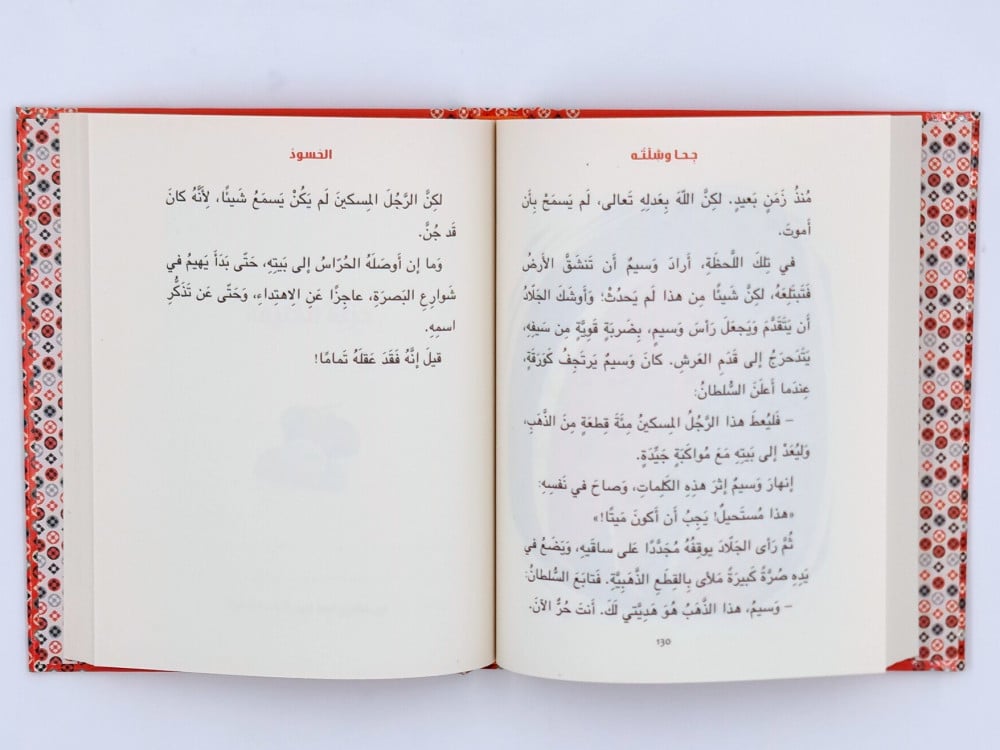 جحا وسلّته
مُنذُ زَمَنٍ بَعيدٍ. لكِنَّ اللّهَ بِعَدلِهِ تَعالى، لَم يَسمَعْ بِأَن
أَموتَ.
في تِلكَ اللَّحظَةِ، أَرادَ وَسيمٌ أَن تَنشَقَّ الأَرضُ
فَتَبتَلِعَهُ، لكِنَّ شَيئًا مِن هذا لَم يَحدُثْ: وَأَوشَكَ الجَلّادُ
أَن يَتَقَدَّمَ وَيَجعَلَ رَأسَ وَسيمٍ، بِضَربَةٍ قَوِيَّةٍ مِن سَيفِهِ،
يَتَدَحرَجُ إِلى قَدَمِ العَرشِ. كانَ وَسيمٌ يَرتَجِفُ كَوَرَقَةٍ،
عِندَما أَعلَنَ السُّلطانُ:
– فَليُعطَ هذا الرَّجُلُ المِسكينُ مِئَةَ قِطعَةٍ مِنَ الذَّهَبِ،
وَليُعَدْ إِلى بَيتِهِ مَعَ مُواكَبَةٍ جَيِّدَةٍ.
إِنهارَ وَسيمٌ إِثرَ هذِهِ الكَلِماتِ، وَصاحَ في نَفسِهِ:
«هذا مُستَحيلٌ! يَجِبُ أَن أَكونَ مَيتًا!»
ثُمَّ رَأى الجَلّادَ يوقِفُهُ مُجَدَّدًا عَلى ساقَيهِ، وَيَضَعُ في
يَدِهِ صُرَّةً كَبيرَةً مَلأى بِالقِطَعِ الذَّهَبِيَّةِ. فَتابَعَ السُّلطانُ:
– وَسيمُ، هذا الذَّهَبُ هُوَ هَدِيَّتي لَكَ. أَنتَ حُرٌّ الآنَ.
130
الحَسودُ
لكِنَّ الرَّجُلَ المِسكينَ لَم يَكُنْ يَسمَعُ شَيئًا، لِأَنَّهُ كانَ
قَد جُنَّ.
وَما إِن أَوصَلَهُ الحُرّاسُ إِلى بَيتِهِ، حَتّى بَدَأَ يَهيمُ في
شَوارِعِ البَصرَةِ، عاجِزًا عَنِ الاهتِداءِ، وَحَتّى عَن تَذَكُّرِ
اسمِهِ.
قيلَ إِنَّهُ فَقَدَ عَقلَهُ تَمامًا!